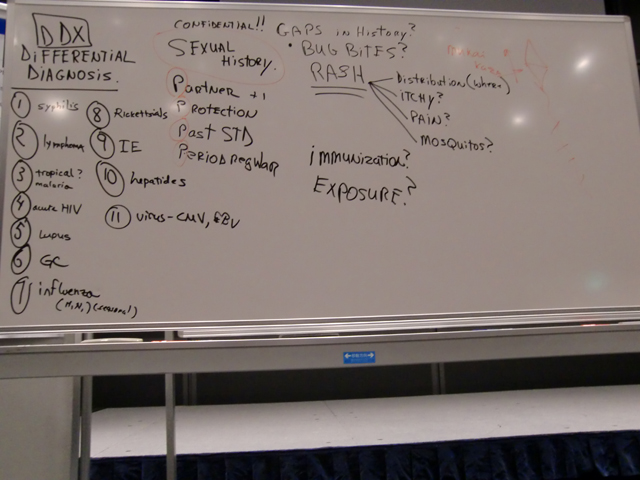 DDX
DIFFERENTIAL
DIAGNOSIS.
1 syphilis
2 lymphoma
3 tropical?
malaria
4 acute HIV
5 Lupus
6 GC
7 influenza
(H1N1) (seasonal)
8 Rickettsials
9 IE
10 hepatides
11 virus-CMV, EBV
CONFIDENTIAL!!
SEXUAL
HISTORY.
Partner +1
PROTECTION
Past STD
PERIOD REGULAR
GAPS in History?
• BUG BITES?
RASH
Distribution (where)
ITCHY?
PAIN?
MOSQUITOS?
immunization?
EXPOSURE?